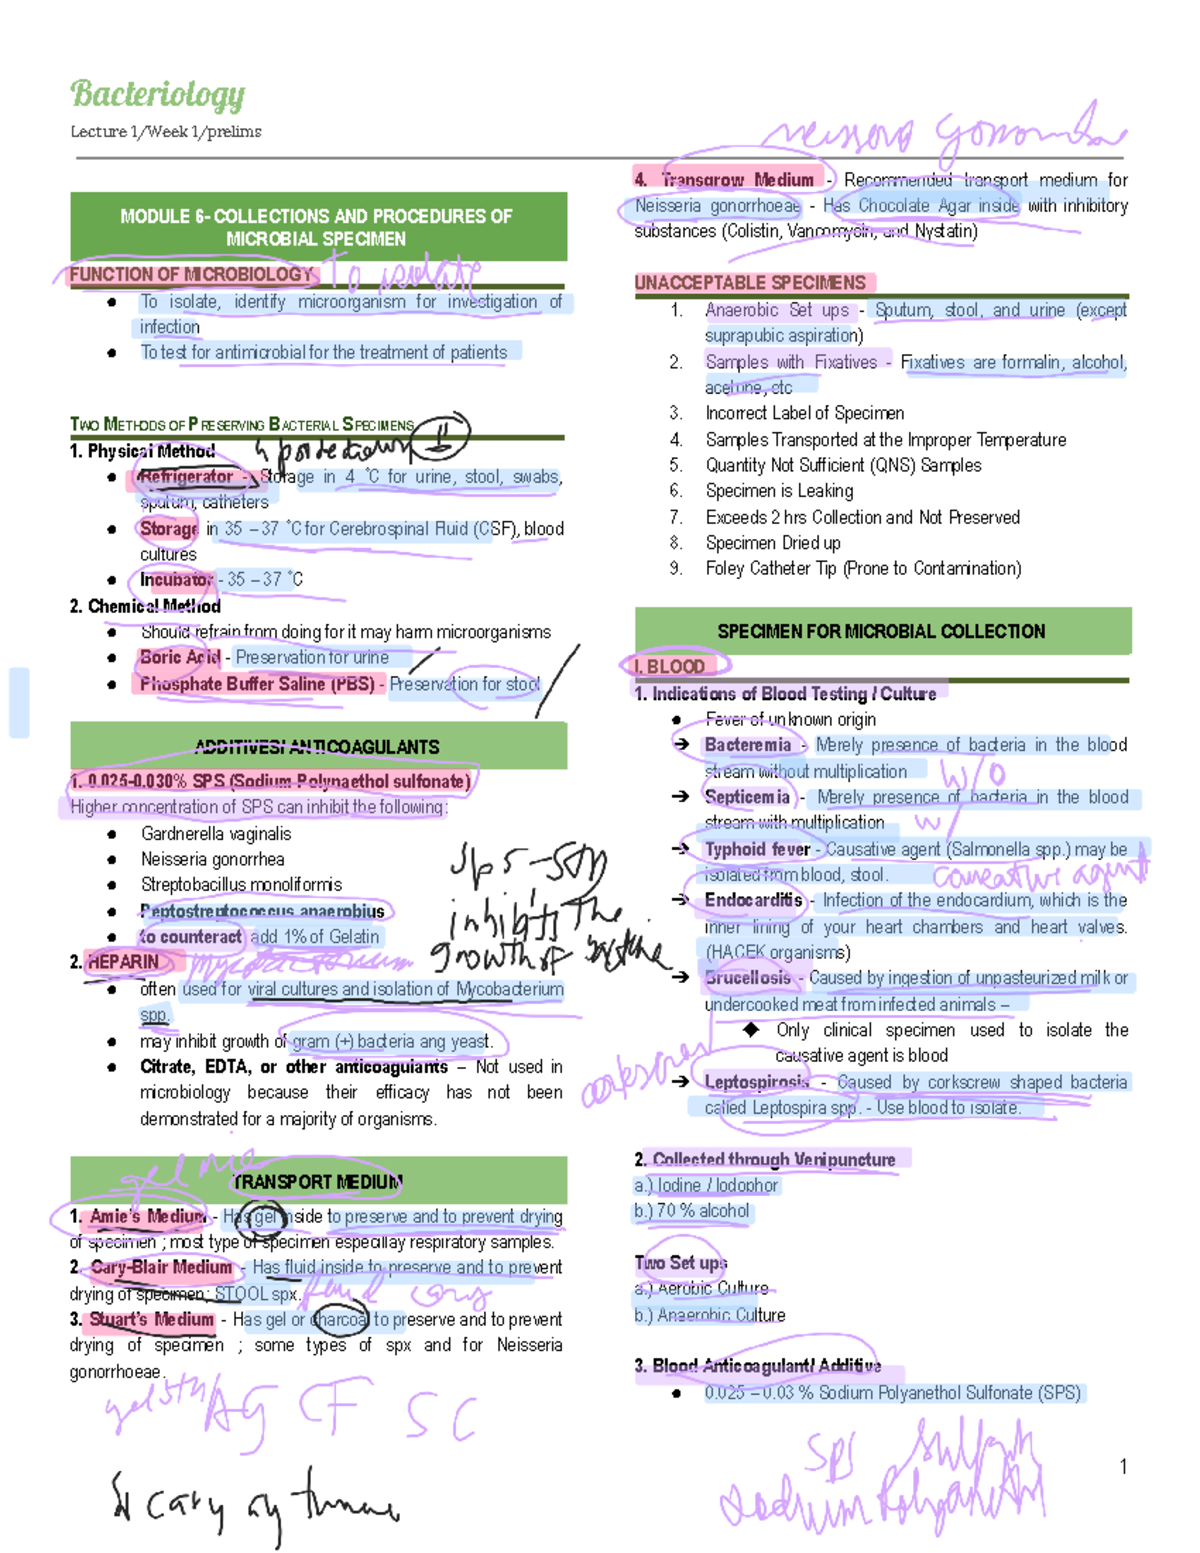 Bacteriology
Lecture 1/Week 1/prelims
MODULE 6- COLLECTIONS AND PROCEDURES OF
MICROBIAL SPECIMEN
FUNCTION OF MICROBIOLOGY
To isolate
● To isolate, identify microorganism for investigation of
infection
● To test for antimicrobial for the treatment of patients
TWO METHODS OF PRESERVING BACTERIAL SPECIMENS
1. Physical Method
● Refrigerator - Storage in 4 ˚C for urine, stool, swabs,
sputum, catheters
● Storage in 35 – 37 ˚C for Cerebrospinal Fluid (CSF), blood
cultures
● Incubator - 35 – 37 ˚C
2. Chemical Method
● Should refrain from doing for it may harm microorganisms
● Boric Acid - Preservation for urine
● Phosphate Buffer Saline (PBS) - Preservation for stool
ADDITIVES/ ANTICOAGULANTS
1. 0.025-0.030% SPS (Sodium Polynaethol sulfonate)
Higher concentration of SPS can inhibit the following:
● Gardnerella vaginalis
● Neisseria gonorrhea
● Streptobacillus moniliformis
● Peptostreptococcus anaerobius
● to counteract add 1% of Gelatin
sps -
inhibits The
growth of
2. HEPARIN
● often used for viral cultures and isolation of Mycobacterium
spp.
● may inhibit growth of gram (+) bacteria ang yeast.
● Citrate, EDTA, or other anticoagulants – Not used in
microbiology because their efficacy has not been
demonstrated for a majority of organisms.
TRANSPORT MEDIUM
1. Amie's Medium - Has gel inside to preserve and to prevent drying
of specimen ; most type of specimen especillay respiratory samples.
2. Cary-Blair Medium - Has fluid inside to preserve and to prevent
drying of specimen; STOOL spx.
fluid cary
3. Stuart's Medium - Has gel or charcoal to preserve and to prevent
drying of specimen ; some types of spx and for Neisseria
gonorrhoeae.
AG CF SC
4. Transgrow Medium - Recommended transport medium for
Neisseria gonorrhoeae - Has Chocolate Agar inside with inhibitory
substances (Colistin, Vancomycin, and Nystatin)
UNACCEPTABLE SPECIMENS
1. Anaerobic Set ups - Sputum, stool, and urine (except
suprapubic aspiration)
2. Samples with Fixatives - Fixatives are formalin, alcohol,
acetone, etc
3. Incorrect Label of Specimen
4. Samples Transported at the Improper Temperature
5. Quantity Not Sufficient (QNS) Samples
6. Specimen is Leaking
7. Exceeds 2 hrs Collection and Not Preserved
8. Specimen Dried up
9. Foley Catheter Tip (Prone to Contamination)
SPECIMEN FOR MICROBIAL COLLECTION
I. BLOOD
1. Indications of Blood Testing / Culture
● Fever of unknown origin
➔ Bacteremia - Merely presence of bacteria in the blood
stream without multiplication
w/o
➔ Septicemia - Merely presence of bacteria in the blood
stream with multiplication
w/
➔ Typhoid fever - Causative agent (Salmonella spp.) may be
isolated from blood, stool.
causative agent
➔ Endocarditis - Infection of the endocardium, which is the
inner lining of your heart chambers and heart valves.
(HACEK organisms)
➔ Brucellosis - Caused by ingestion of unpasteurized milk or
undercooked meat from infected animals –
◆ Only clinical specimen used to isolate the
causative agent is blood
➔ Leptospirosis - Caused by corkscrew shaped bacteria
called Leptospira spp. - Use blood to isolate.
2. Collected through Venipuncture
a.) Iodine / Iodophor
b.) 70 % alcohol
Two Set ups
a.) Aerobic Culture
b.) Anaerobic Culture
3. Blood Anticoagulant/ Additive
● 0.025 – 0.03 % Sodium Polyanethol Sulfonate (SPS)
SPS
1